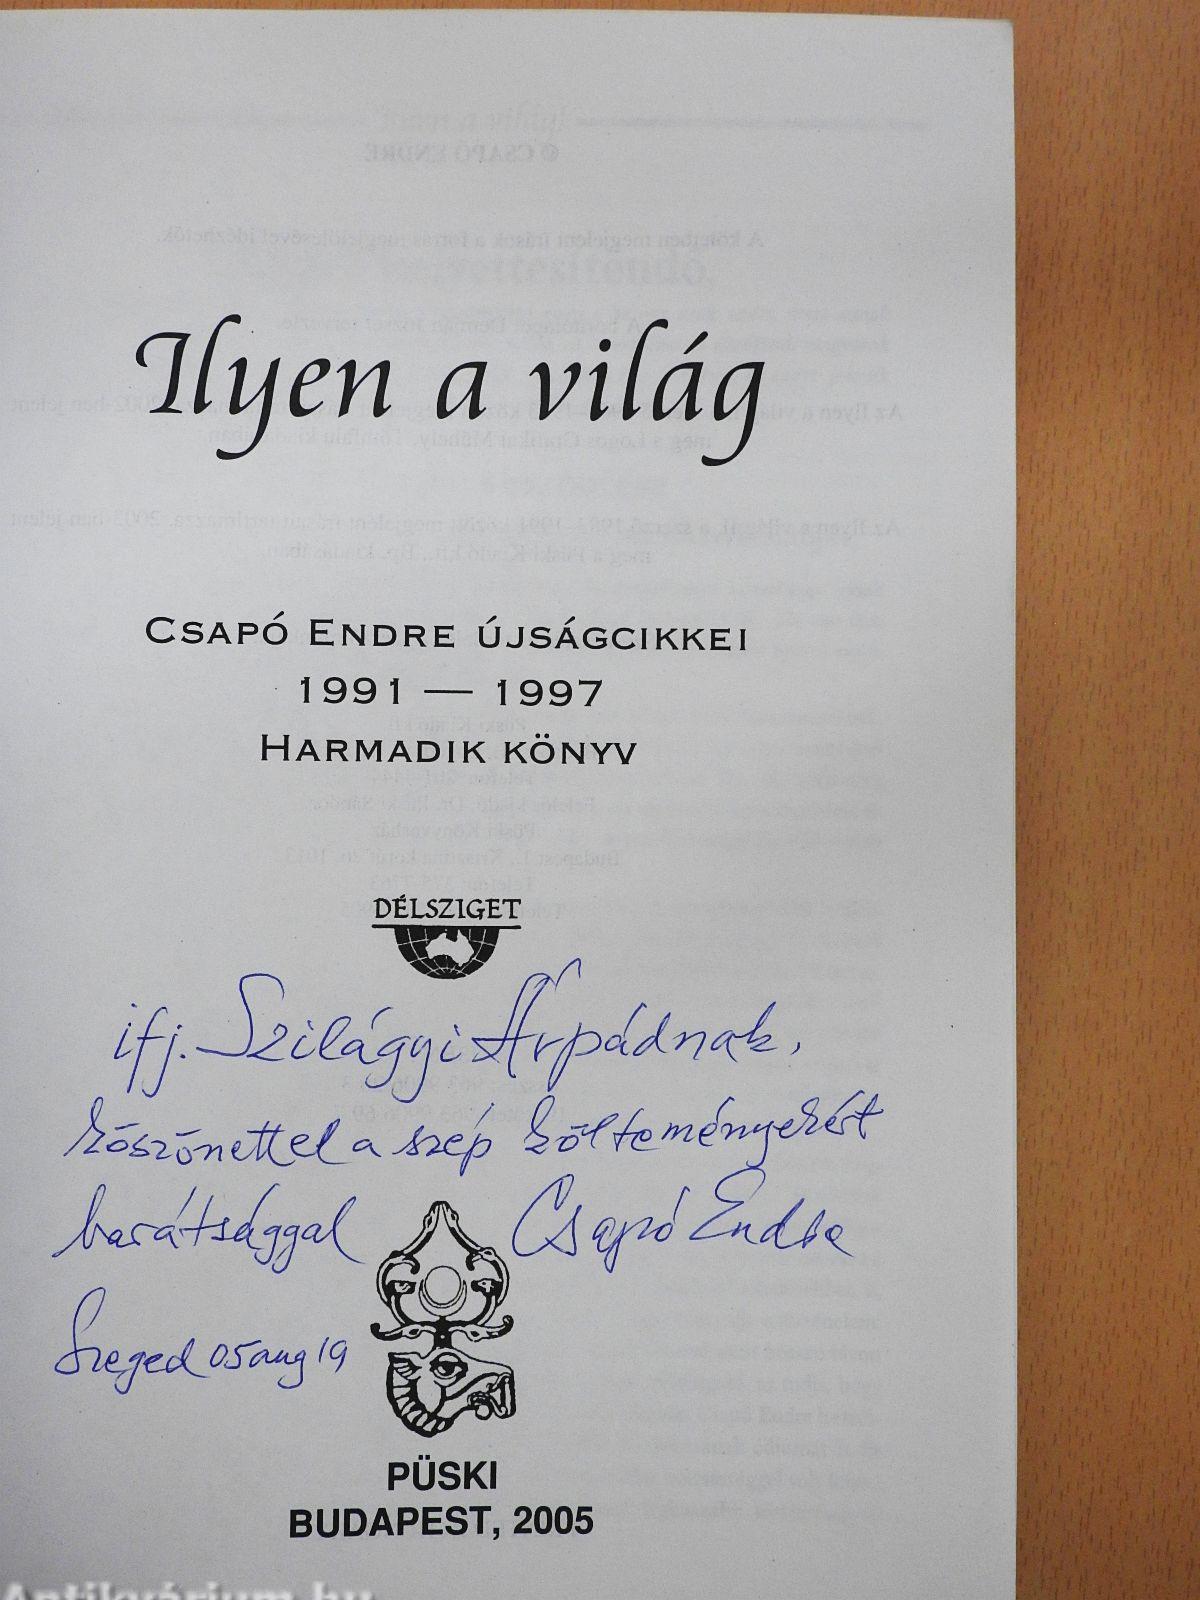 Ilyen a világ
CSAPÓ ENDRE ÚJSÁGCIKKEI
1991 — 1997
HARMADIK KÖNYV
DÉLSZIGET
ifj. Szilágyi Árpádnak,
köszönettel a szép költeményekért
barátsággal Csapó Endre
Szeged 05 aug 19
PÜSKI
BUDAPEST, 2005
Antikvárium.hu